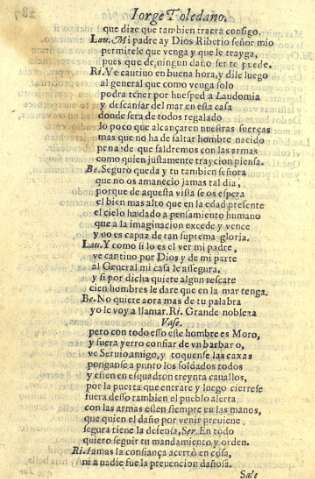 Jorge Toledano.
que dize que tambien traera consigo.
Lau. Mi padre ay Dios Riberio señor mio
permitele que venga y que le trayga,
pues que de, ningun daño ser te puede.
Ri. Ve cautino en buena hora, y dile luego
al general que como venga solo
podra tener por huesped a Laudomia
y descansar del mar en esta casa
donde sera de todos regalado
lo poco que alcançaren nuestras fuerças
mas que no ha de saltar hombre nacido
pena de que saldremos con las armas
como quien justamente traycion piensa.
Be. Seguro queda y tu tambien señora
que no os amanecio jamas tal dia,
porque de aquesta vista se os espera
el bien mas alto que en la edad presente
el cielo ha dado a pensamiento humano
que a la imaginacion excede y vence
y no es capaz de tan suprema gloria.
Lau. Y como si lo es el ver mi padre,
ve cantino por Dios y de mi parte
al General mi casa le assegura,
y si por dicha quiere algun rescate
cien hombres le dare que en la mar tenga.
Be. No quiere aora mas de tu palabra
yo le voy a llamar. Ri. Grande nobleza
Vase.
pero con todo esso este hombre es Moro,
y fuera yerro confiar de vn barbaro,
ve Seruio amigo, y toquense las caxas
ponganse a punto los soldados todos
y esten en esquadron treynta cauallos,
por la puerta que entrare y luego cierrese
fuera desso tambien el pueblo alerta
con las armas esten siempre en las manos,
que quien el daño por venir preuiene
segura tiene la defensa, Ser. En todo
quiero seguir tu mandamiento y orden.
Ri. Iamas la confiança acertò en cosa,
ni a nadie fue la preuencion dañosa.
Sale